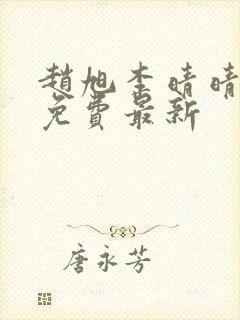 趙旭李晴晴
免費最新
唐永芳